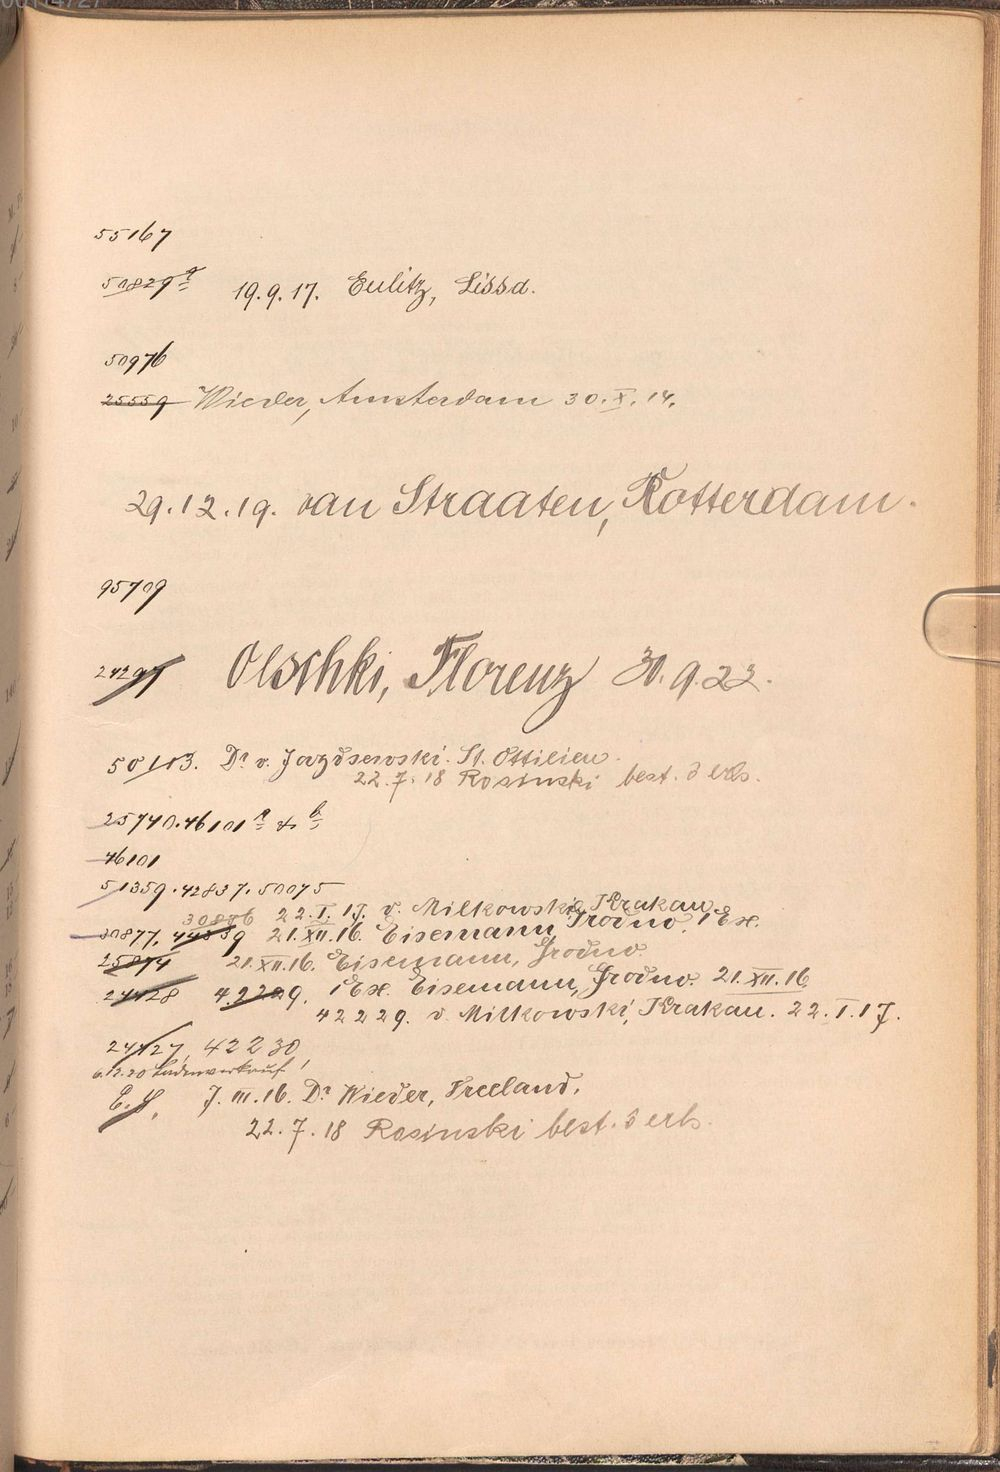 55167
50829 a 19.9.17. Eulitz, Lissa.
50976
25559 Wieder, Amsterdam 30.X.14.
29.12.19. van Straaten, Rotterdam.
95709
24297 Olschki, Florenz 30.9.22.
50113. Dr v. Jazdsewski. St. Ottilien.
22.7.18 Rosinski best. d erb.
25740.46101 a & b
46101
51359.42837.50075
30886 22.I.17. v. Milkowski, Krakau.
30877, 44359 21.XII.16. Eisemann, Grodno. 1 Ex.
25874 21.XII.16. Eisemann, Grodno.
24428 42229. 1 Ex. Eisemann, Grodno. 21.XII.16
42229. v. Milkowski, Krakau. 22.I.17.
24427, 42230,
6.12.20 Ladenverkauf
E.H. 7.III.16. Dr Wieder, Vreeland.
22.7.18 Rosinski best. d erb.